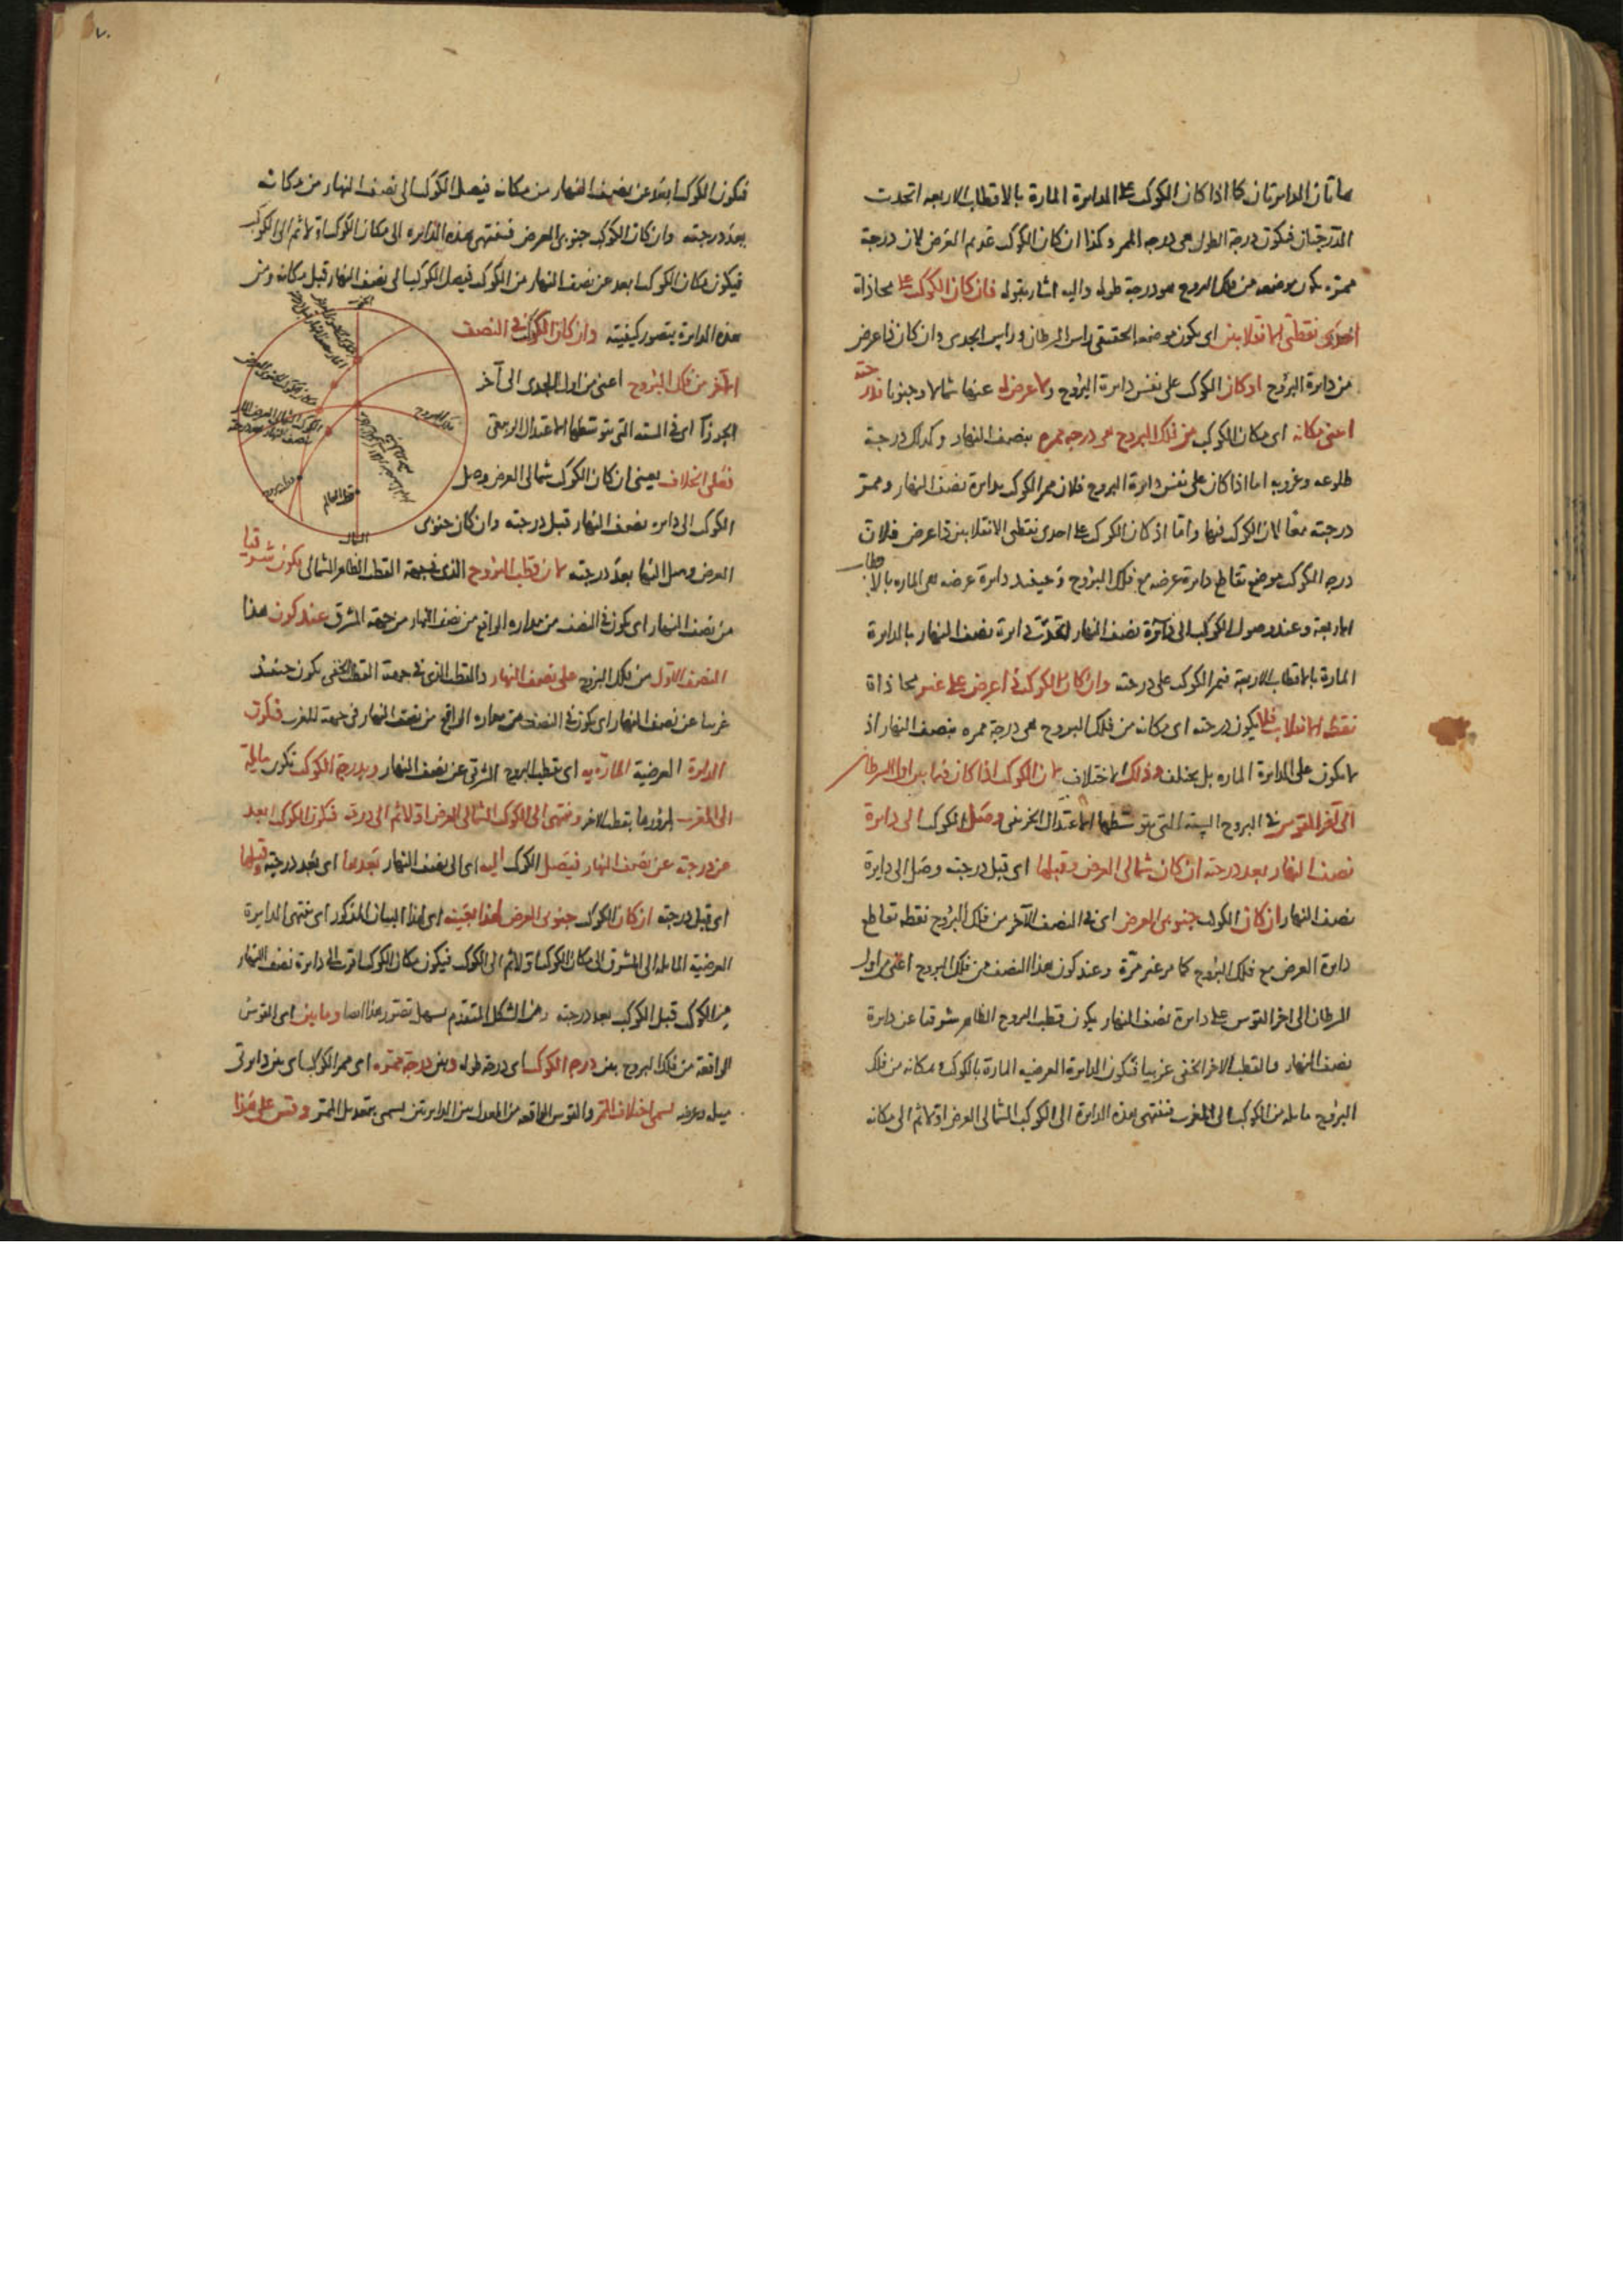 هاتان الدايرتان كما اذا كان الكوكب على الدايرة المارة بالاقطاب الاربعة اتحدت
الدرجتان فيكون درجة الطول هى درجه الممر وكذا ان كان الكوكب عديم العرض لان درجة
ممره يكون موضعه من فلك البروج هو درجة طوله واليه اشار بقوله فان كان الكوكب على محاذاة
احدى نقطتى الانقلابين اى يكون موضعه الحقيقى راس السرطان وراس الجدى وان كان ذا عرض
من دايرة البروج او كان الكوكب على نفس دايرة البروج ولا عرض له عنها شمالا وجنوبا فدرجته
اعنى مكانه اى مكان الكوكب من فلك البروج هى درجه ممره بنصف النهار وكذلك درجة
طلوعه وغروبه اما اذا كان على نفس دايرة البروج فلان ممر الكوكب بدايرة نصف النهار وممر
درجته معا لان الكوكب فيها واما اذ كان الكوكب على احدى نقطتى الانقلابين ذا عرض فلان
درجه الكوكب موضع تقاطع دايرة عرضه مع فلك البروج وحينيذ دايرة عرضه هى الماره بالاقطاب
الاربعة وعند وصول الكوكب الى دايرة نصف النهار اتحدت دايرة نصف النهار بالدايرة
المارة بالاقطاب الاربعة فيمر الكوكب على درجته وان كان الكوكب ذا عرض على غير محاذاة
نقطة الانقلاب فلا يكون درجته اى مكانه من فلك البروج هى درجة ممره بنصف النهار اذ
لا يكون على الدايرة الماره بل يختلف وذلك الاختلاف لان الكوكب اذا كان فيما بين اول السرطان
الى آخر القوس فى البروج الستة التى يتوسطها الاعتدال الخريفى وصل الكوكب الى دايرة
نصف النهار بعد درجته ان كان شمالى العرض وقبلها اى قبل درجته وصل الى دايرة
نصف النهار ان كان الكوكب جنوبى العرض اى فى النصف الآخر من فلك البروج نقطة تقاطع
دايرة العرض مع فلك البروج كما مر غير مرة وعند كون هذا النصف من فلك البروج اعنى من اول
السرطان الى اخر القوس على دايرة نصف النهار يكون قطب البروج الظاهر شرقيا عن دايرة
نصف النهار والقطب الاخر الخفى غربيا فيكون الدايرة العرضيه المارة بالكوكب ومكانه من فلك
البروج مايله من الكوكب الى المغرب فتنتهى هذه الدايرة الى الكوكب الشمالى العرض اولا ثم الى مكانه
٧٠
فيكون الكوكب ابعد عن نصف النهار من مكانه فيصل الكوكب الى نصف النهار من مكانه
بعد درجته وان كان الكوكب جنوبى العرض فتنتهى هذه الدايره الى مكان الكوكب اولا ثم الى الكوكب
فيكون مكان الكوكب ابعد عن نصف النهار من الكوكب فيصل الكوكب الى نصف النهار قبل مكانه ومن
هذه الدايرة يتصور كيفيته وان كان الكوكب فى النصف
الآخر من فلك البروج اعنى من اول الجدى الى آخر
الجوزآ اى فى الستة التى يتوسطها الاعتدال الربيعى
فعلى الخلاف يعنى ان كان الكوكب شمالى العرض وصل
الكوكب الى دايره نصف النهار قبل درجته وان كان جنوبى
العرض وصل اليها بعد درجته لان قطب البروج الذى فى جهة القطب الظاهر الشمالى يكون شرقيا
من نصف النهار اى يكون فى النصف من مداره الواقع من نصف النهار من جهة المشرق عند كون هذا
النصف الاول من فلك البروج على نصف النهار والقطب الذى فى جهة القطب الخفى يكون حينيذ
غربيا عن نصف النهار اى يكون فى النصف من مداره الواقع من نصف النهار فى جهة المغرب فيكون
الدايرة العرضية المارة به اى بقطب البروج الشرقى عن نصف النهار وبدرجة الكوكب تكون مايلة
الى المغرب لمرورها بقطب الاخر وتنتهى الى الكوكب الشمالى العرض اولا ثم الى درجته فيكون الكوكب ابعد
من درجته عن نصف النهار فيصل الكوكب اليه اى الى نصف النهار بعدها اى بعد درجته وقبلها
اى قبل درجته ان كان الكوكب جنوبى العرض لهذا بعينه اى لهذا البيان المذكور اى تنتهى الدايرة
العرضية المايلة الى المشرق الى مكان الكوكب اولا ثم الى الكوكب فيكون مكان الكوكب اقرب الى دايرة نصف النهار
من الكوكب قبل الكوكب بعد درجته ومن الشكل المتقدم يسهل تصور هذا ايضا وما بين اى القوس
الواقعة من فلك البروج بين درجه الكوكب اى درجة طوله وبين درجة ممره اى ممر الكوكب اى بين دايرتى
ميله وعرضه تسمى اختلاف الممر والقوس الواقعه من المعدل بين الدايرتين تسمى بتعديل الممر وقس على هذا
الجنوب
فلك البروج
قطب العالم
قطب البروج
الشمال